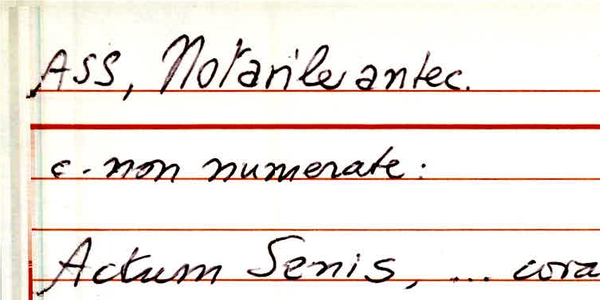 ASS, Notarile antec.
c. non numerate:
Actum Senis, ... cora